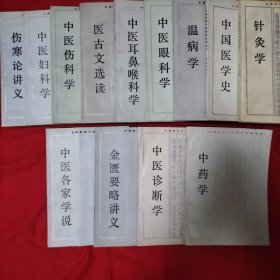 伤寒论讲义
中医妇科学
中医伤科学
医古文选读
中医耳鼻喉科学
中医眼科学
温病学
中国医学史
针灸学
中医各家学说
金匮要略讲义
中医诊断学
中药学